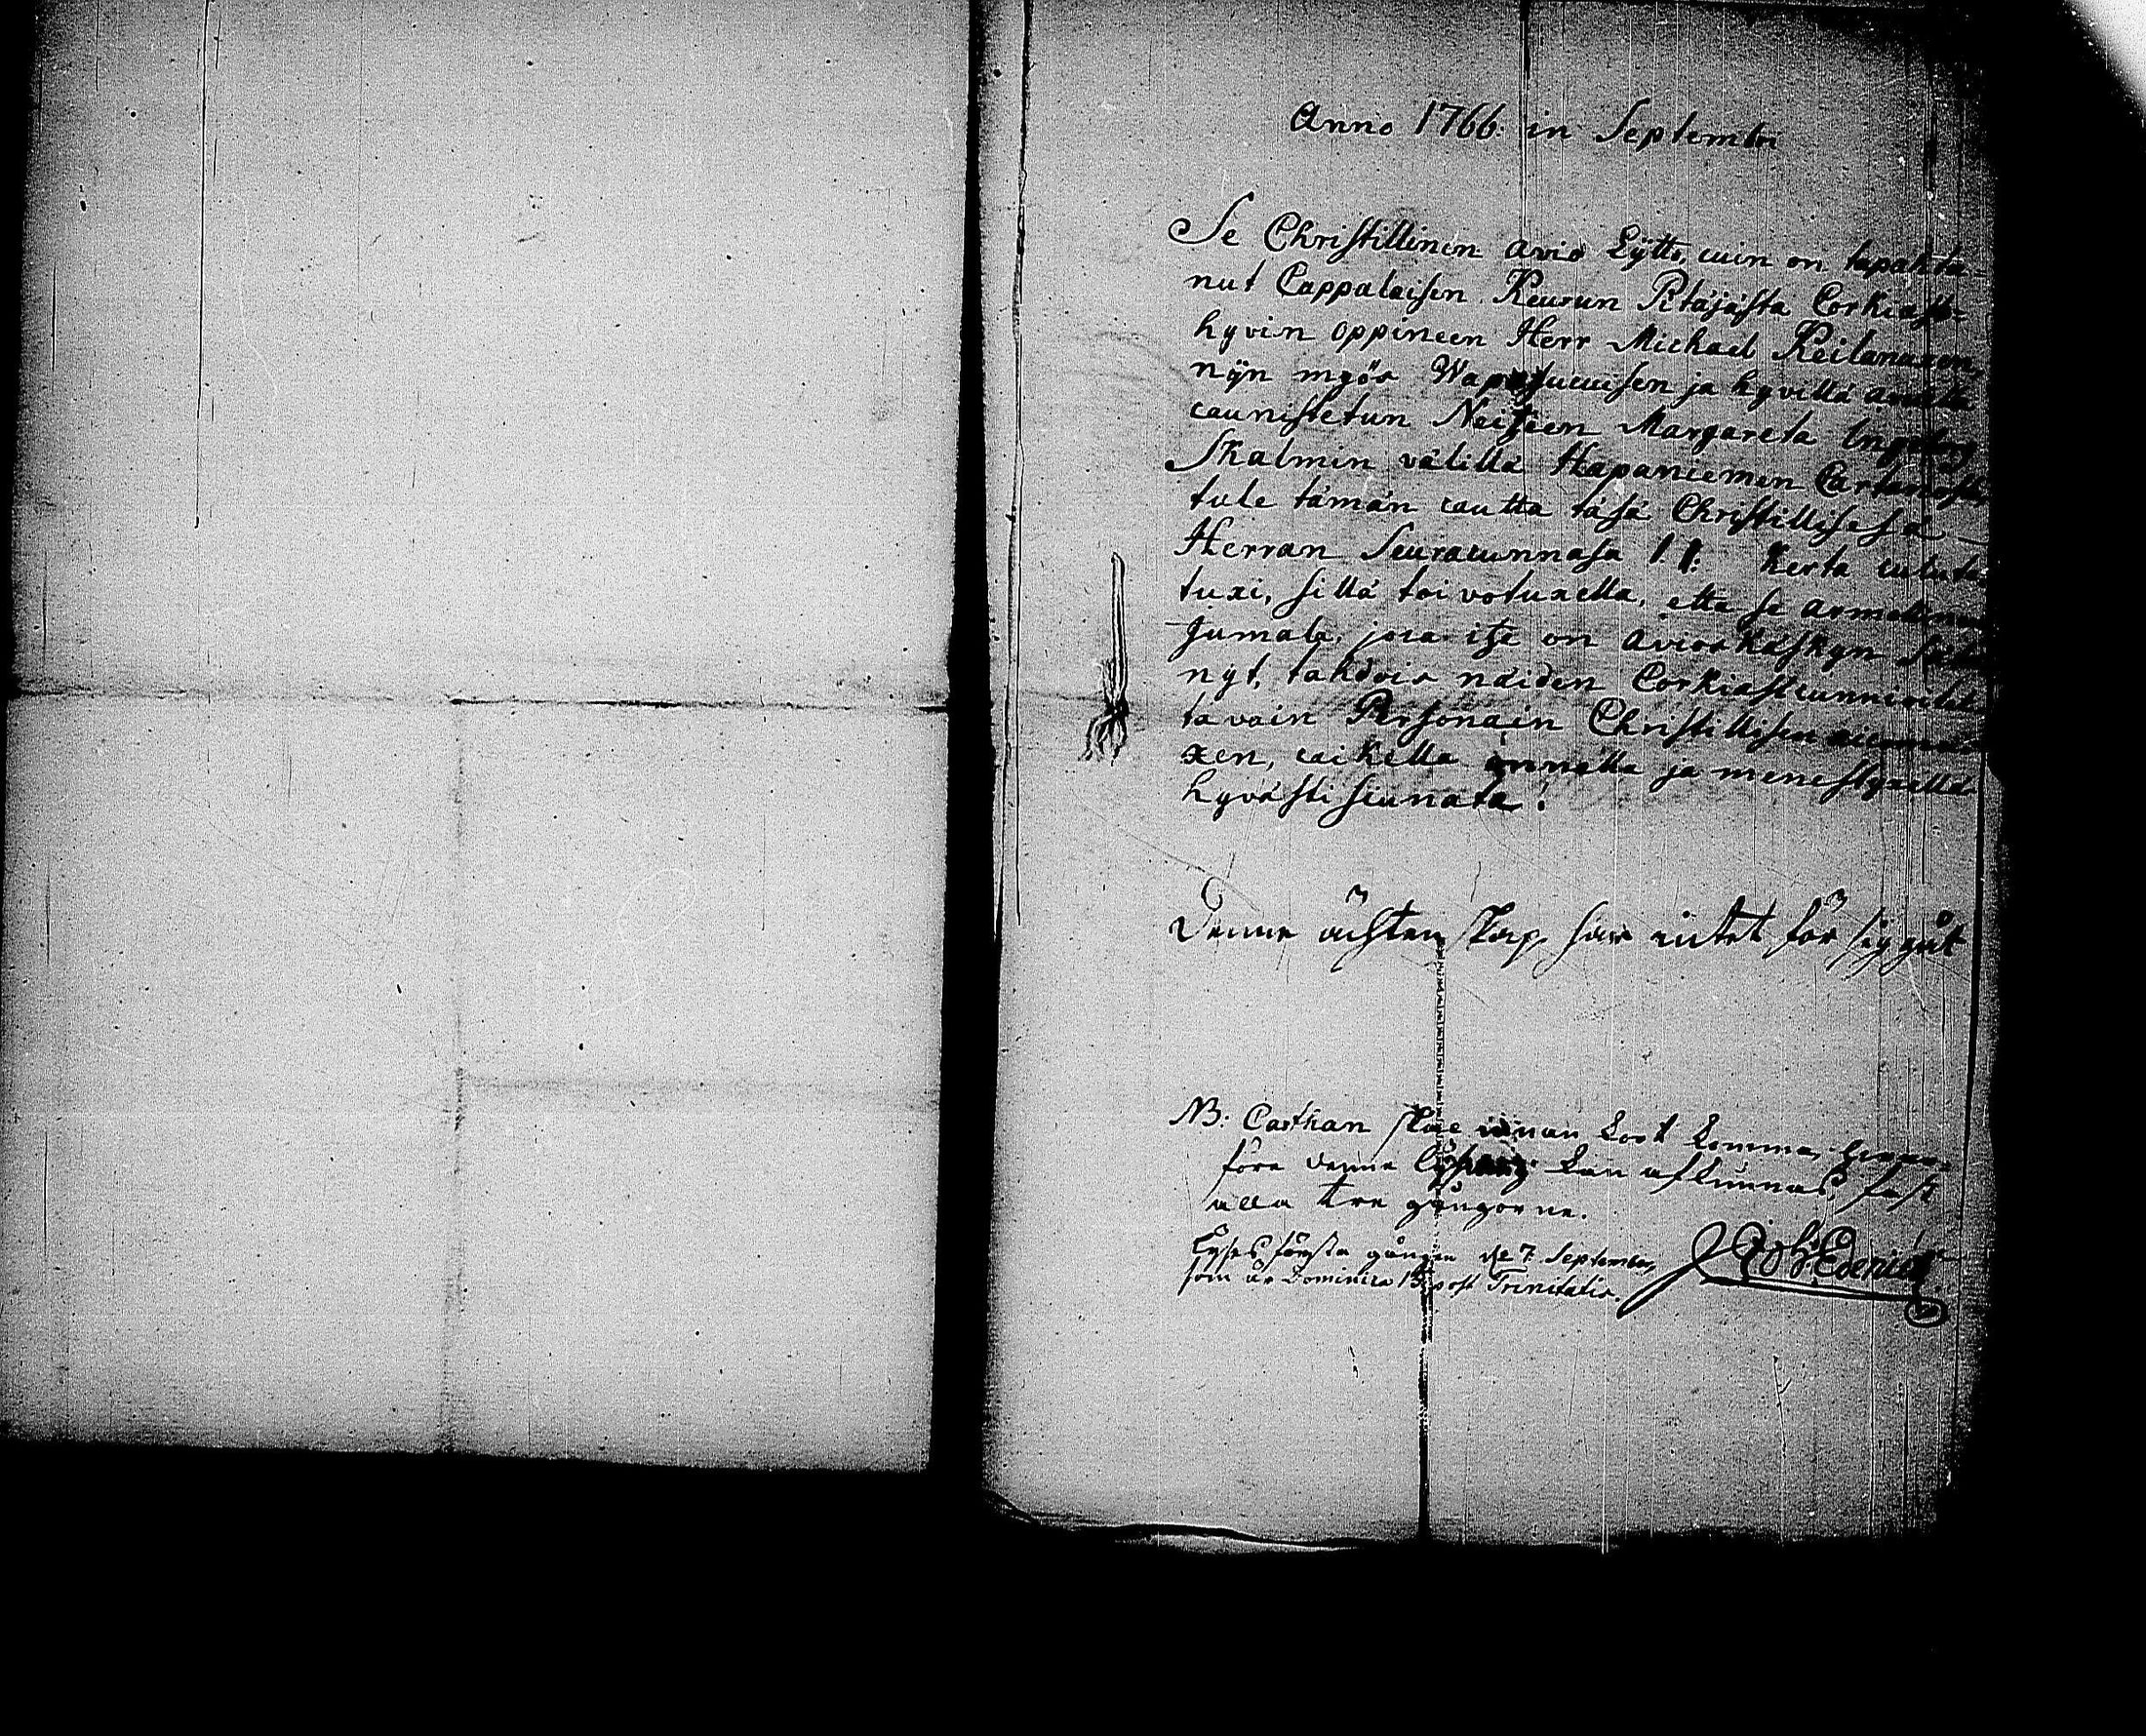 Anno 1766 in Septembri
Se Christillinen avio Lijtto, cuin on tapahta-
nut Cappalaisen Keurun Pitäjästä Corkiast-
hyvin oppineen Herr Michael Keilanaxen,
nijn myös Wapasucuisen ja hyvillä avuilla
caunistetun Neitzeen Margareta Ingeborg
Skalmin välillä Hapaniemen Cartanosta,
tule tämän cautta täsä Christillisesä
Herran Seuracunnasa 1. Kerta culute-
tuxi, sillä toivotuxella, että se armollinen
Jumala, joca itze on avioskäskyn
nyt, tahdois näiden Corkiast cunnioitet-
tavain Personain Christillisen aicomu-
xen, caikella onnella ja menestyxellä
hyvästi siunata!
Denne ächtenskap har intet för sig gått
NB: Carthan skae innan kort komma,
före denne Lysning kan afkunnas, fast
alla tre gångorne.
Lyses första gången d. 7. September,
som är Dominica 15 post Trinitatis.